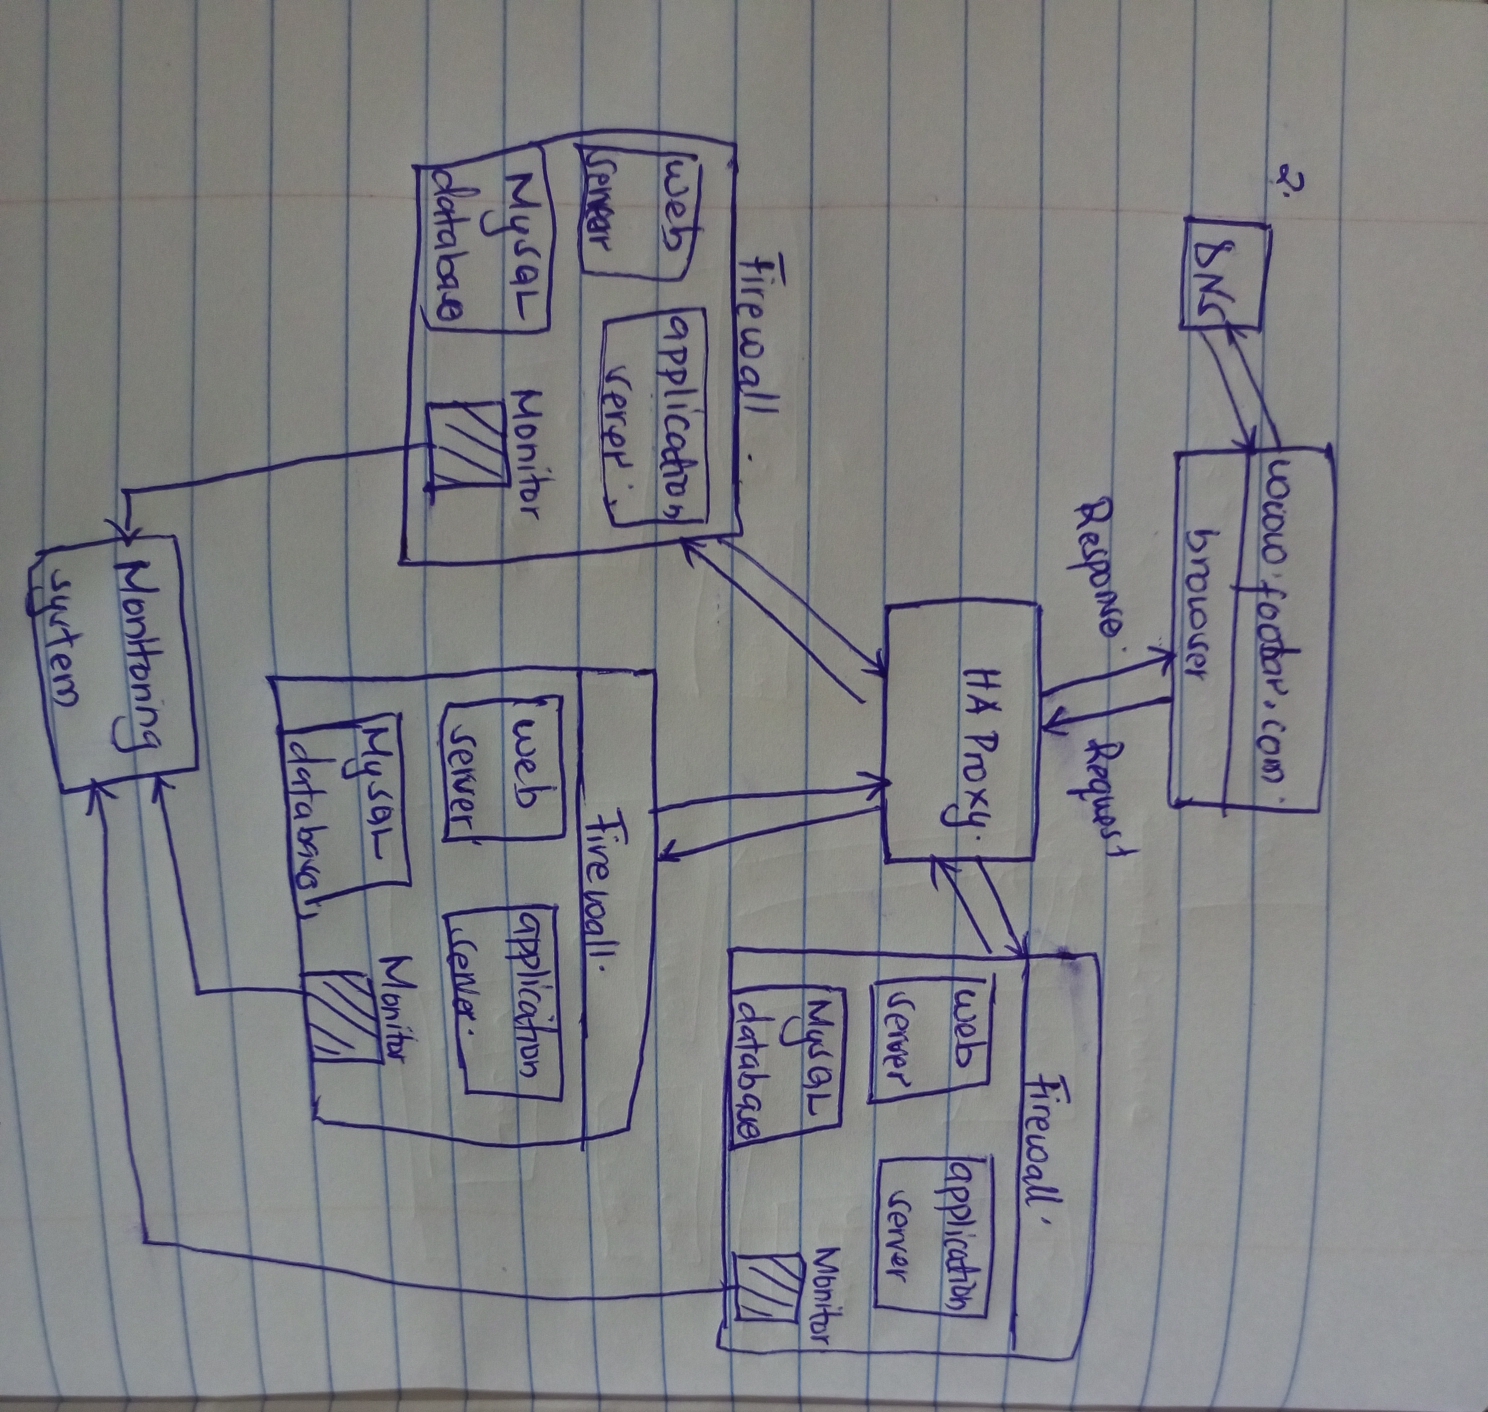 2.
DNS
www.foobar.com.
browser
Response.
Request
HA Proxy.
Firewall.
web
server
application
server.
MySQL
database
Monitor
Firewall.
web
server
application
server.
MySQL
database
Monitor
Firewall.
web
server
application
server
MySQL
database
Monitor
Monitoring
system